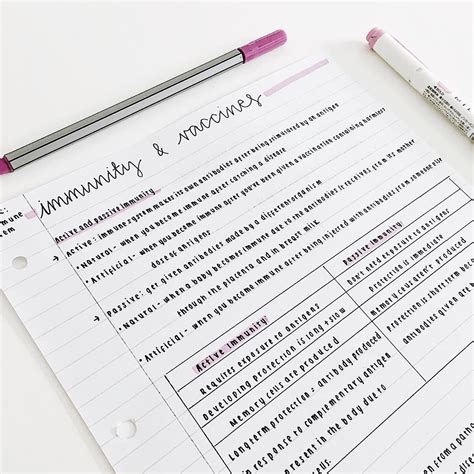 immunity & vaccines
Active and passive immunity
Active: immune system makes its own antibodies after being stimulated by an antigen
• Natural - when you become immune after catching a disease
• Artificial - when you become immune after you've been given a vaccination containing a harmless
dose of antigens
Passive: get given antibodies made by a different organism
• Natural - when a baby becomes immune due to the antibodies it receives from its mother
through the placenta and in breast milk
• Artificial - when you become immune after being injected with antibodies from someone else
Active immunity:
Requires exposure to antigens
Developing protection is long + slow
Memory cells are produced
Long term protection: antibody produced
in response to complementary antigen
present in the body due to
Passive immunity:
Don't need exposure to antigens
Protection is immediate
Memory cells aren't produced
Protection is short term
antibodies given are
from a